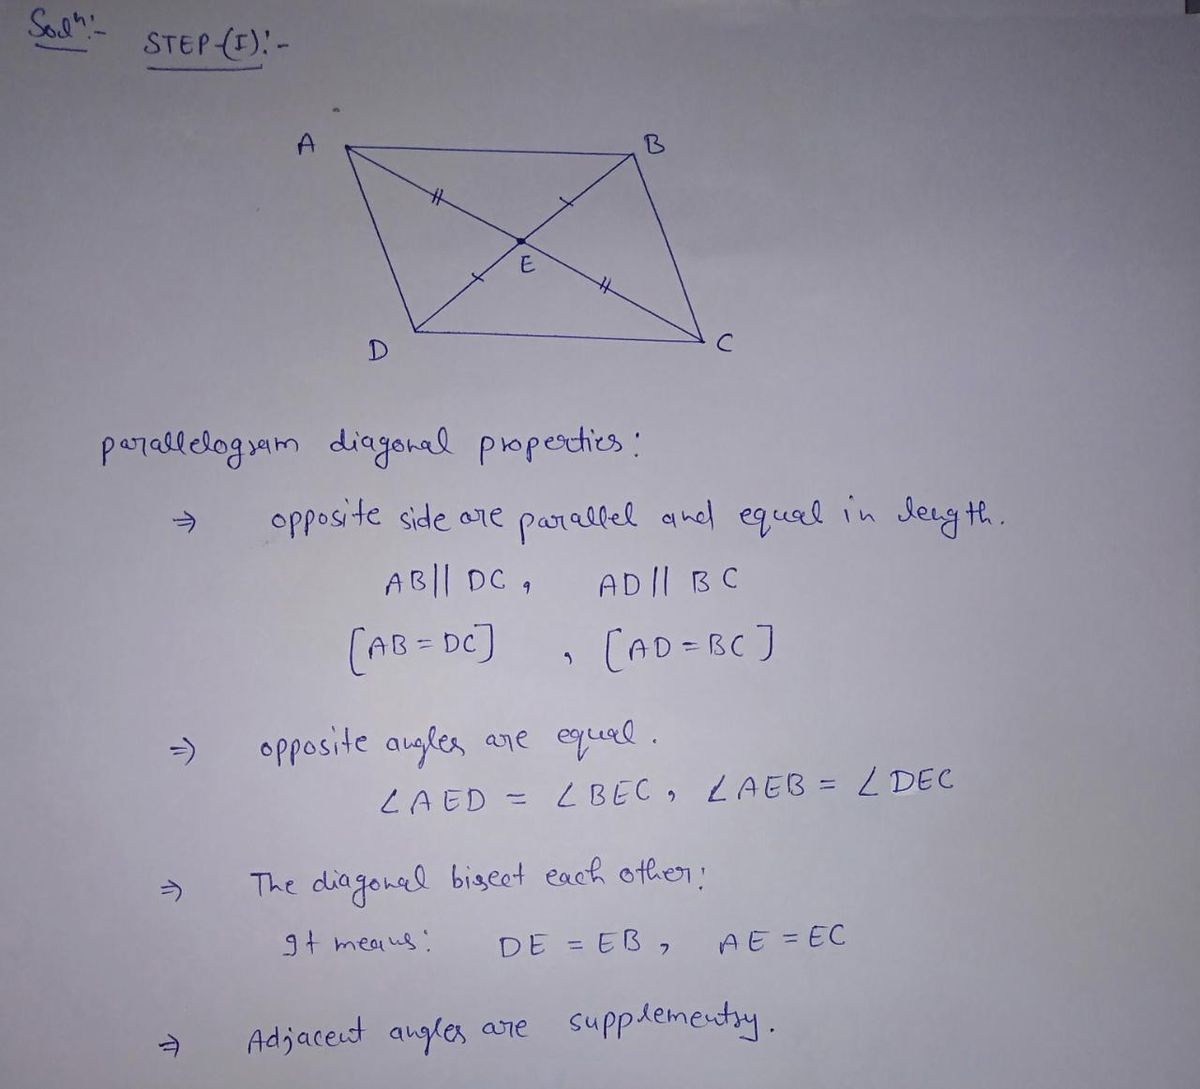 Solⁿ:-
STEP-(I):-
A B
E
D C
parallelogram diagonal properties:
⇒ opposite side are parallel and equal in length.
AB || DC, AD || BC
[AB = DC], [AD = BC]
⇒ opposite angles are equal.
∠AED = ∠BEC, ∠AEB = ∠DEC
⇒ The diagonal bisect each other;
It means: DE = EB, AE = EC
⇒ Adjacent angles are supplementry.